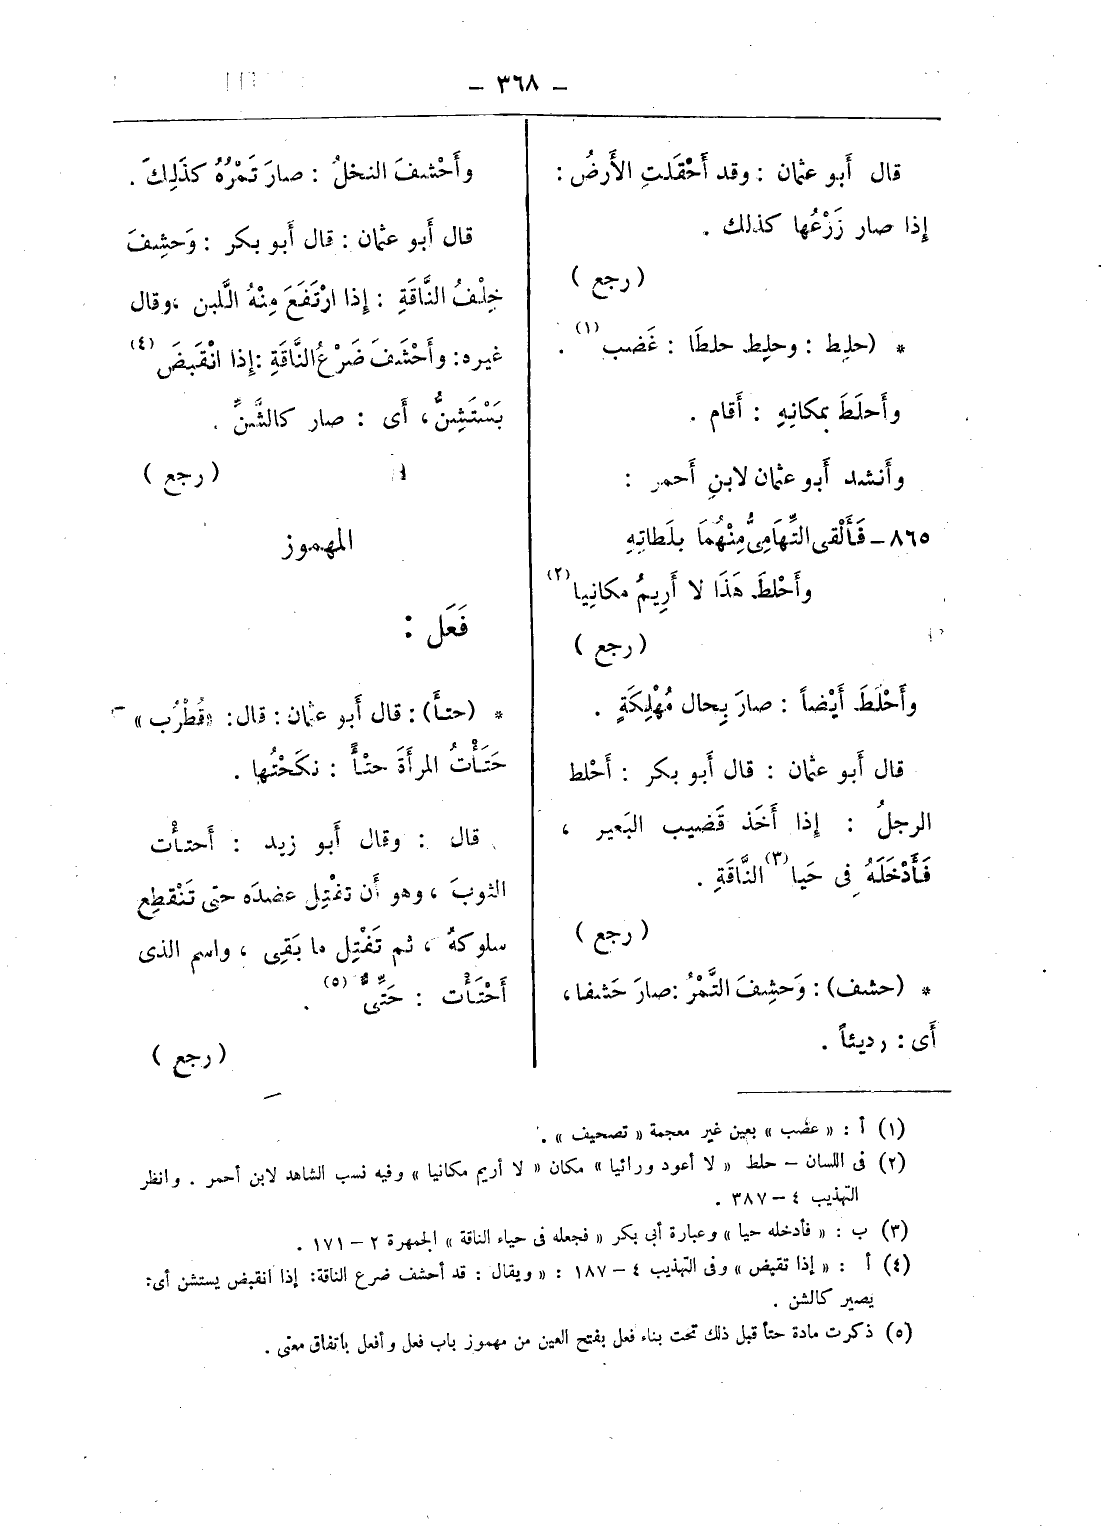 — ٣٦٨ —
قال أَبو عثمان : وقد أَحْقَلَتِ الأَرضُ :
إِذا صار زَرْعُها كذلك .
( رجع )
* (حلط : وحلِط حلطًا : غَضب (١) .
وأَحلَطَ بمكانِهِ : أَقام .
وأَنشد أَبو عثمان لابنِ أَحمر :
٨٦٥ – فَأَلْقى التِّهَامِىُّ مِنْهُمَا بلَطاتِهِ
وأَحْلطَ هَذَا لا أَرِيمُ مكانِيا (٢)
( رجع )
وأَحْلَطَ أَيْضاً : صارَ بِحال مُهْلِكَةٍ .
قال أَبو عثمان : قال أَبو بكر : أَحْلط
الرجلُ : إِذا أَخَذ قَضيب البَعير ،
فَأَدْخَلَهُ فى حَيا (٣) النَّاقَةِ .
( رجع )
* (حشف) : وَحشِفَ التَّمْرُ : صارَ حَشفا ،
أَى : رديئاً .
وأَحْشفَ النخلُ : صارَ تَمْرُهُ كذَلِكَ .
قال أَبو عثمان : قال أَبو بكر : وَحشِفَ
خِلْفُ النَّاقَةِ : إِذا ارْتَفَعَ مِنْهُ الَّلبن ، وقال
غيره : وأَحْشَفَ ضَرْعُ النَّاقَةِ : إِذا انْقَبضَ (٤)
يَسْتَشِنُّ ، أَى : صار كالشَّنِّ .
( رجع )
المهموز
فَعَل :
* (حتأ) : قال أَبو عثمان : قال : «قُطْرُب»
حَتَأْتُ المرأَةَ حتْأً : نكَحْتُها .
قال : وقال أَبو زيد : أَحتأْت
الثوبَ ، وهو أَن تفْتِل عضدَه حتى تَنْقطِع
سلوكهُ ، ثم تَفْتِل ما بَقِى ، واسم الذى
أَحْتَأْت : حَتِّىٌّ (٥) .
( رجع )
(١) أ : « عضب » بعين غير معجمة « تصحيف » .
(٢) فى اللسان – حلط « لا أعود ورائيا » مكان « لا أريم مكانيا » وفيه نسب الشاهد لابن أحمر . وانظر
التهذيب ٤ – ٣٨٧ .
(٣) ب : « فأدخله حيا » وعبارة أبى بكر « فجعله فى حياء الناقة » الجمهرة ٢ – ١٧١ .
(٤) أ : « إذا تقبض » وفى التهذيب ٤ – ١٨٧ : « ويقال : قد أحشف ضرع الناقة : إذا انقبض يستشن أى :
يصير كالشن .
(٥) ذكرت مادة حتأ قبل ذلك تحت بناء فعل بفتح العين من مهموز باب فعل وأفعل باتفاق معنى .